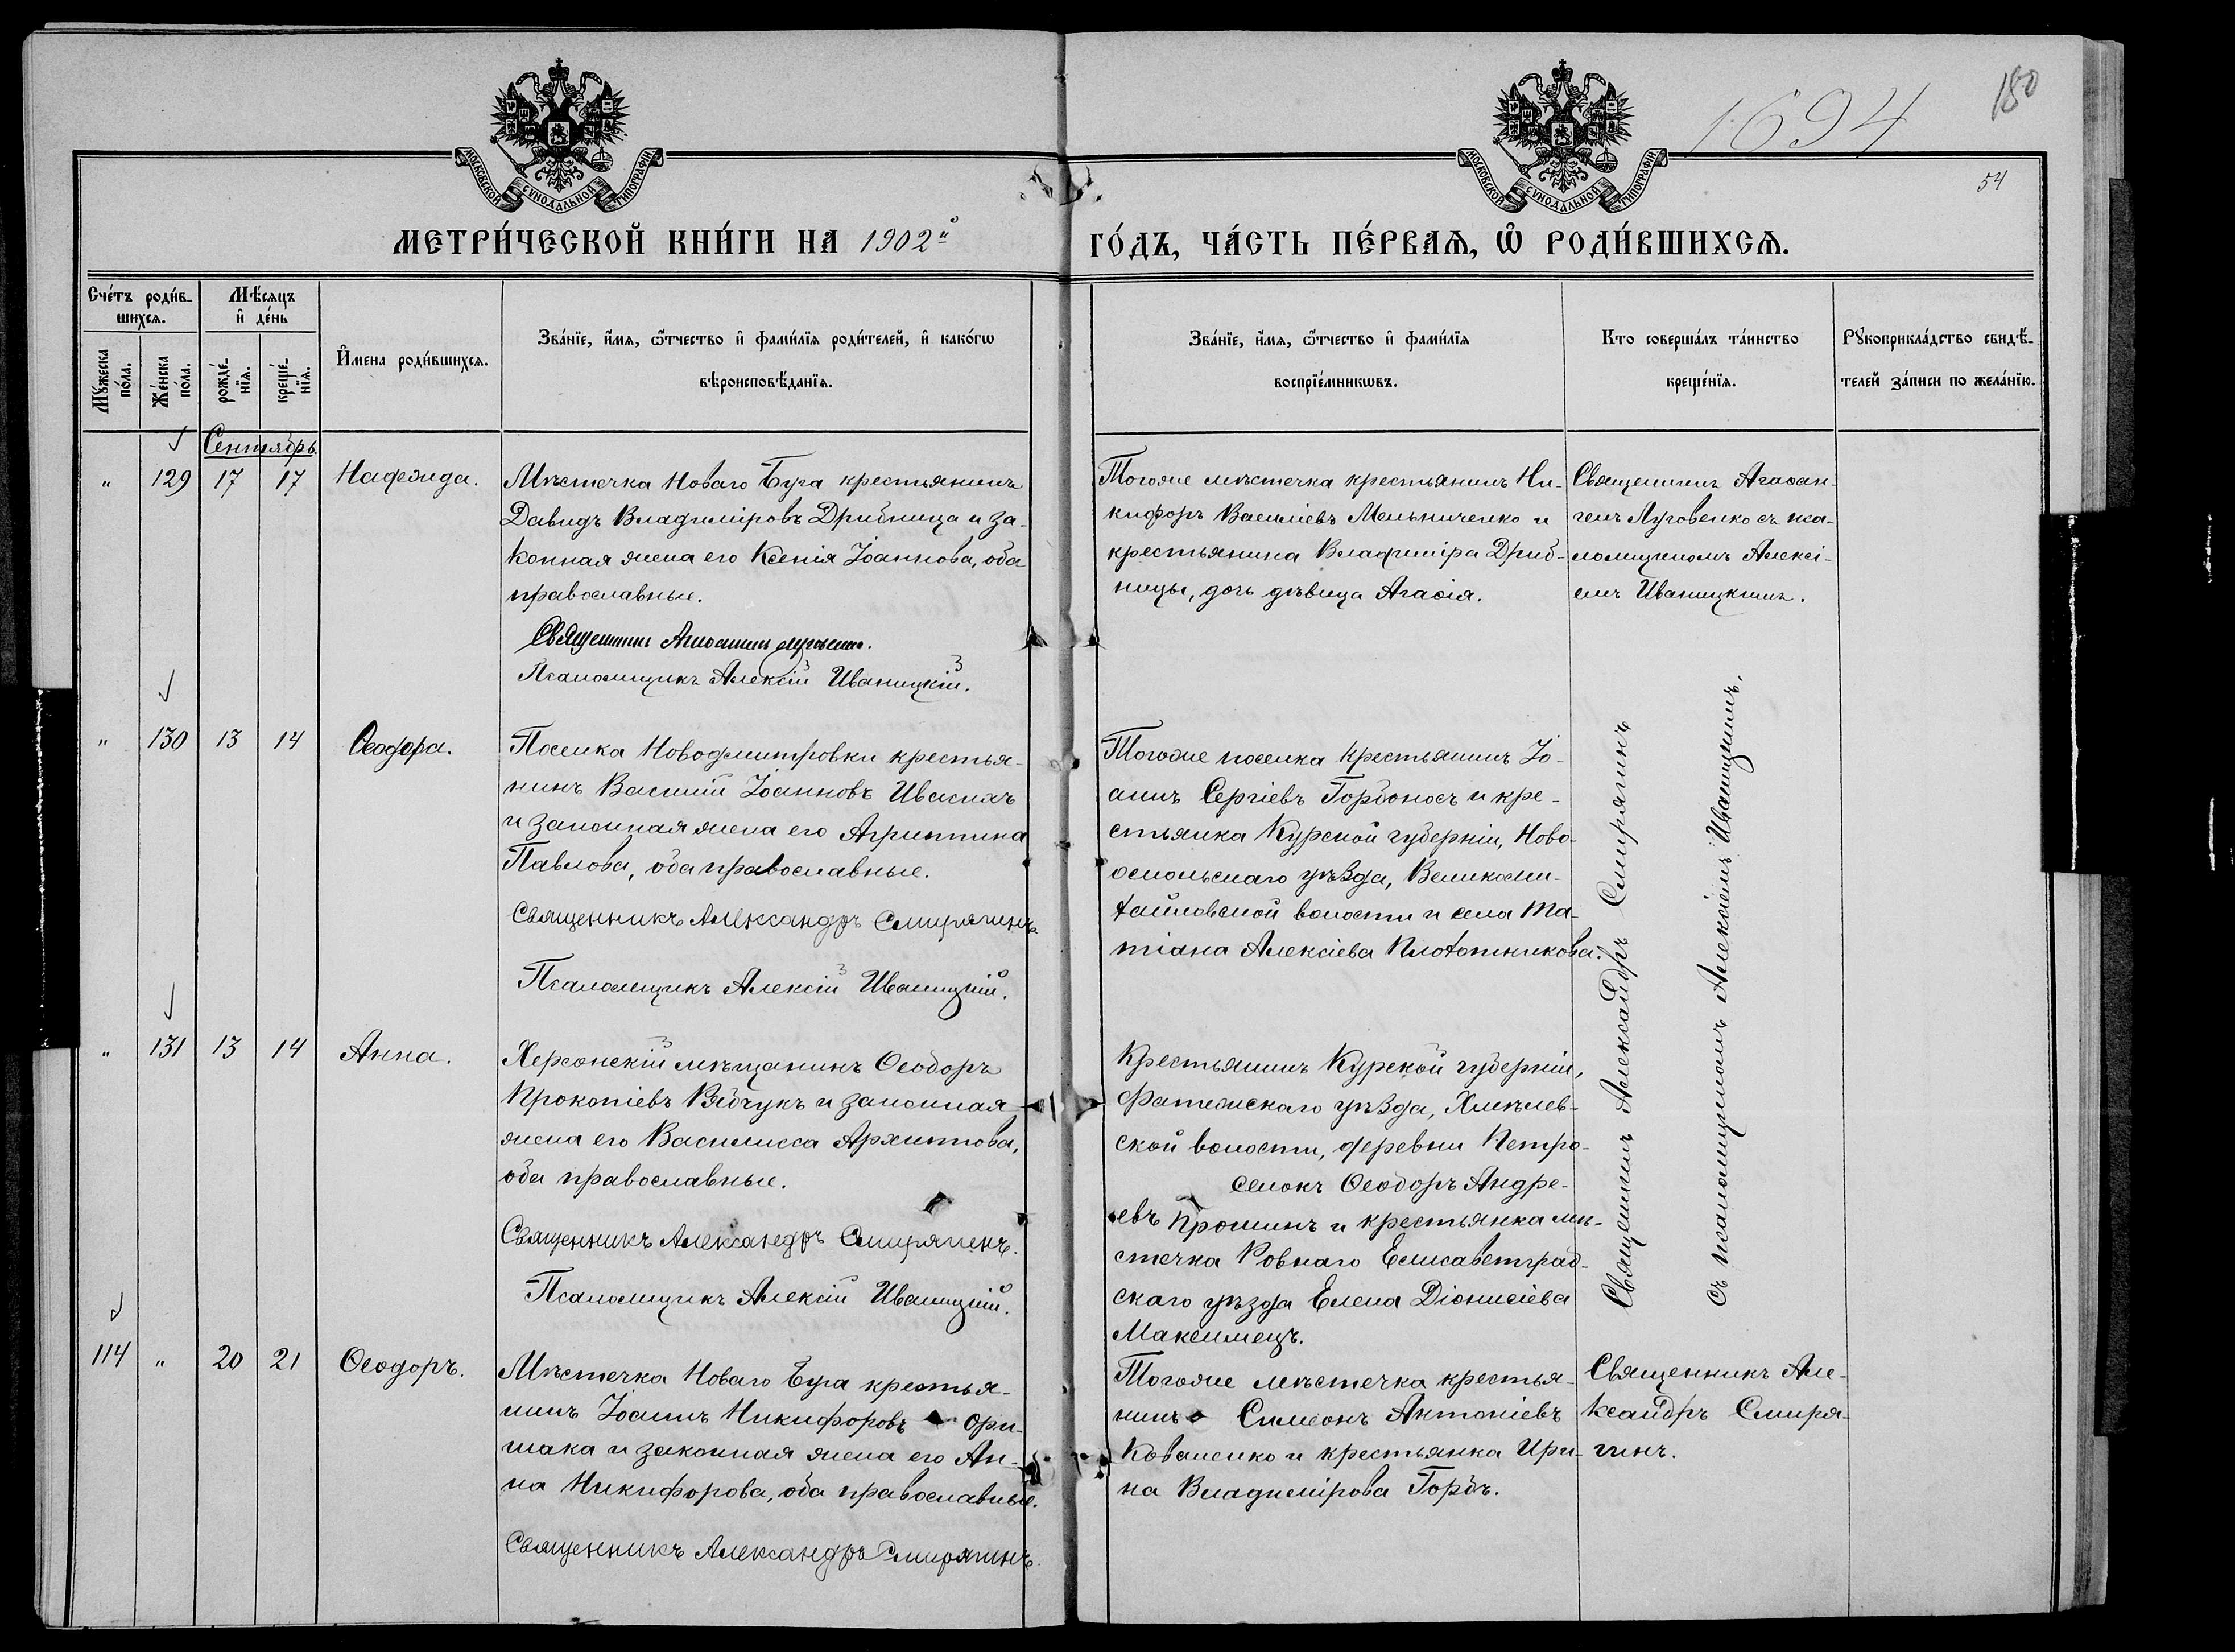 1694
180
54
МОСКОВСКОЙ СУНОДАЛЬНОЙ ТИПОГРАФІИ
МОСКОВСКОЙ СУНОДАЛЬНОЙ ТИПОГРАФІИ
МЕТРИ́ЧЕСКОЙ КНИ́ГИ НА 1902й
ГО́ДЪ, ЧА́СТЬ ПЕ́РВАѦ, Ѽ РОДИ́ВШИХСѦ.
Сче́тъ роди́в-
шихсѧ.
Мѣ́сяцъ
и҆ де́нь
Мꙋ́жеска
по́ла.
Же́нска
по́ла.
рожде́-
нїѧ.
креще́-
нїѧ.
И҆мена роди́вшихсѧ.
Зва́нїе, и҆́мѧ, ѻ҆́тчество и҆ фами́лїѧ роди́телей, и҆ како́гѡ
вѣроисповѣ́данїѧ.
Зва́нїе, и҆́мѧ, ѻ҆́тчество и҆ фами́лїѧ
воспрїе́мникѡвъ.
Кто соверша́лъ та́инство
креще́нїѧ.
Рꙋкоприкла́дство свидѣ́-
телей за́писи по жела́нїю.
Сентябрь.
" 129 17 17 Надежда.
Мѣстечка Новаго Буга крестьянинъ
Давидъ Владиміровъ Дрибница и за-
конная жена его Ксенія Іоаннова, оба
православные.
Священникъ Агаѳангелъ Луговенко.
Псаломщикъ Алексій Иваницкій.
Тогоже мѣстечка крестьянинъ Ни-
кифоръ Василіевъ Мельниченко и
крестьянина Владиміра Дриб-
ницы, дочь дѣвица Агаѳія.
Священникъ Агаѳан-
гелъ Луговенко съ пса-
ломщикомъ Алексі-
емъ Иваницкимъ.
" 130 13 14 Ѳеодора.
Поселка Новодмитровки крестья-
нинъ Василій Іоанновъ Ивасикъ
и законная жена его Агриппина
Павлова, оба православные.
Священникъ Александръ Смирягинъ.
Псаломщикъ Алексій Иваницкій.
Тогоже поселка крестьянинъ Іо-
аннъ Сергіевъ Горбоносъ и кре-
стьянка Курской губерніи, Ново-
оскольскаго уѣзда, Великоми-
хайловской волости и села Та-
тіана Алексіева Плотникова.
Священникъ Александръ Смирягинъ
съ псаломщикомъ Алексіемъ Иваницкимъ.
" 131 13 14 Анна.
Херсонскій мѣщанинъ Ѳеодоръ
Прокопіевъ Рябчукъ и законная
жена его Василисса Архиппова,
оба православные.
Священникъ Александръ Смирягинъ.
Псаломщикъ Алексій Иваницкій.
Крестьянинъ Курской губерніи,
Фатежскаго уѣзда, Хмѣлев-
ской волости, деревни Петро-
селокъ Ѳеодоръ Андре-
евъ Прошинъ и крестьянка мѣ-
стечка Ровнаго Елисаветград-
скаго уѣзда Елена Діонисіева
Максимецъ.
114 " 20 21 Ѳеодоръ.
Мѣстечка Новаго Буга крестья-
нинъ Іоаннъ Никифоровъ Ори-
шака и законная жена его Ан-
на Никифорова, оба православные.
Священникъ Александръ Смирягинъ.
Тогоже мѣстечка крестья-
нинъ Симеонъ Антоніевъ
Коваленко и крестьянка Ири-
на Владимірова Горбъ.
Священникъ Але-
ксандръ Смиря-
гинъ.